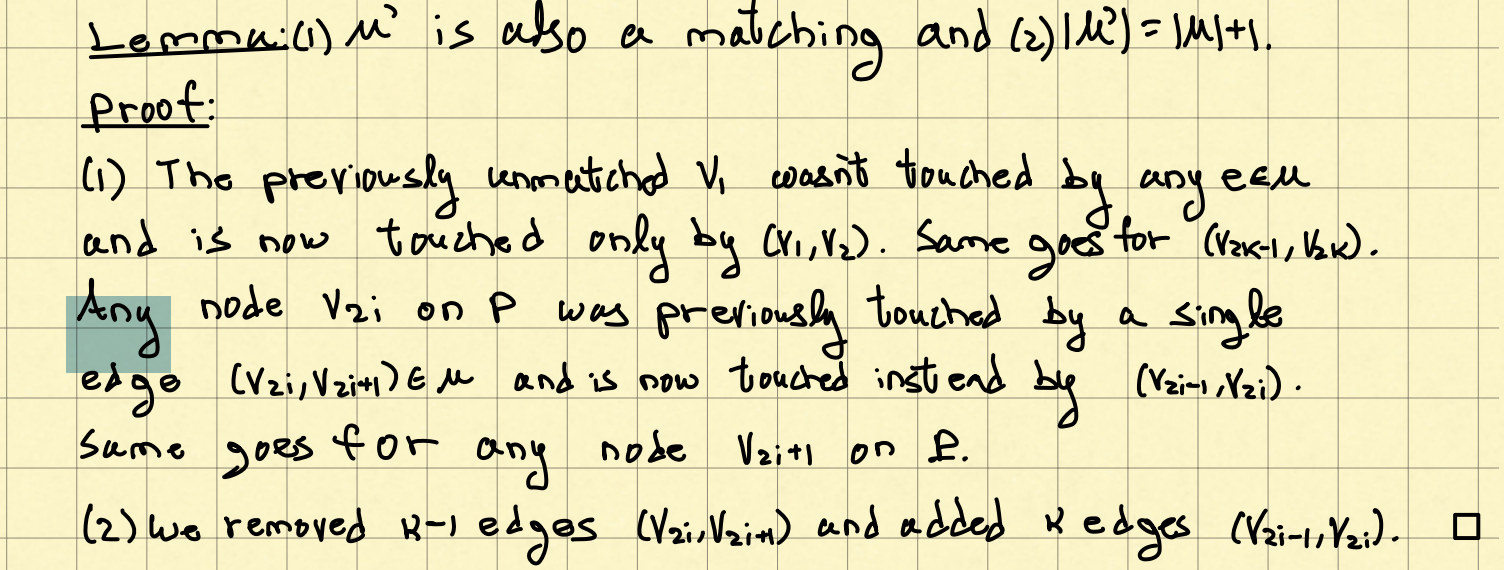 Lemma: (1) M' is also a matching and (2) |M'| = |M|+1.
Proof:
(1) The previously unmatched V₁ wasn't touched by any e∈M
and is now touched only by (V₁,V₂). Same goes for (V₂ₖ₋₁, V₂ₖ).
Any node V₂ᵢ on P was previously touched by a single
edge (V₂ᵢ, V₂ᵢ₊₁) ∈ M and is now touched instead by (V₂ᵢ₋₁, V₂ᵢ).
Same goes for any node V₂ᵢ₊₁ on P.
(2) We removed K-1 edges (V₂ᵢ, V₂ᵢ₊₁) and added K edges (V₂ᵢ₋₁, V₂ᵢ). □